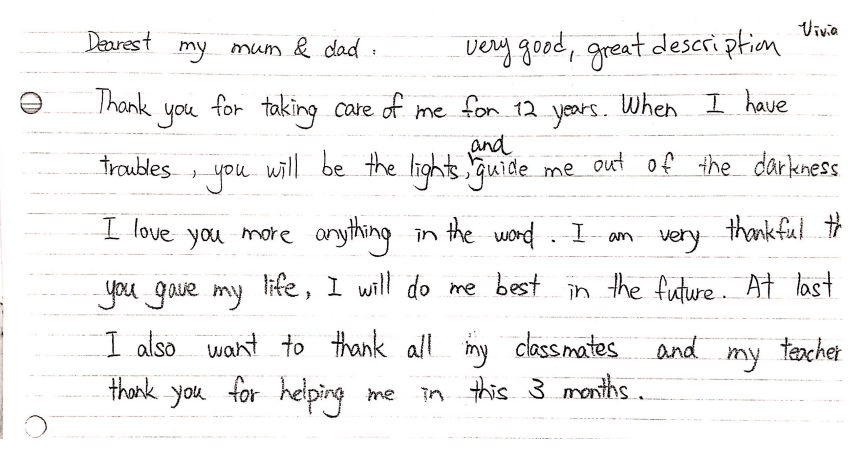 Vivia
Dearest my mum & dad : very good, great description
Thank you for taking care of me for 12 years. When I have
and
troubles , you will be the lights, guide me out of the darkness
I love you more anything in the word . I am very thankful th
you gave my life, I will do me best in the future. At last
I also want to thank all my classmates and my teacher
thank you for helping me in this 3 months.